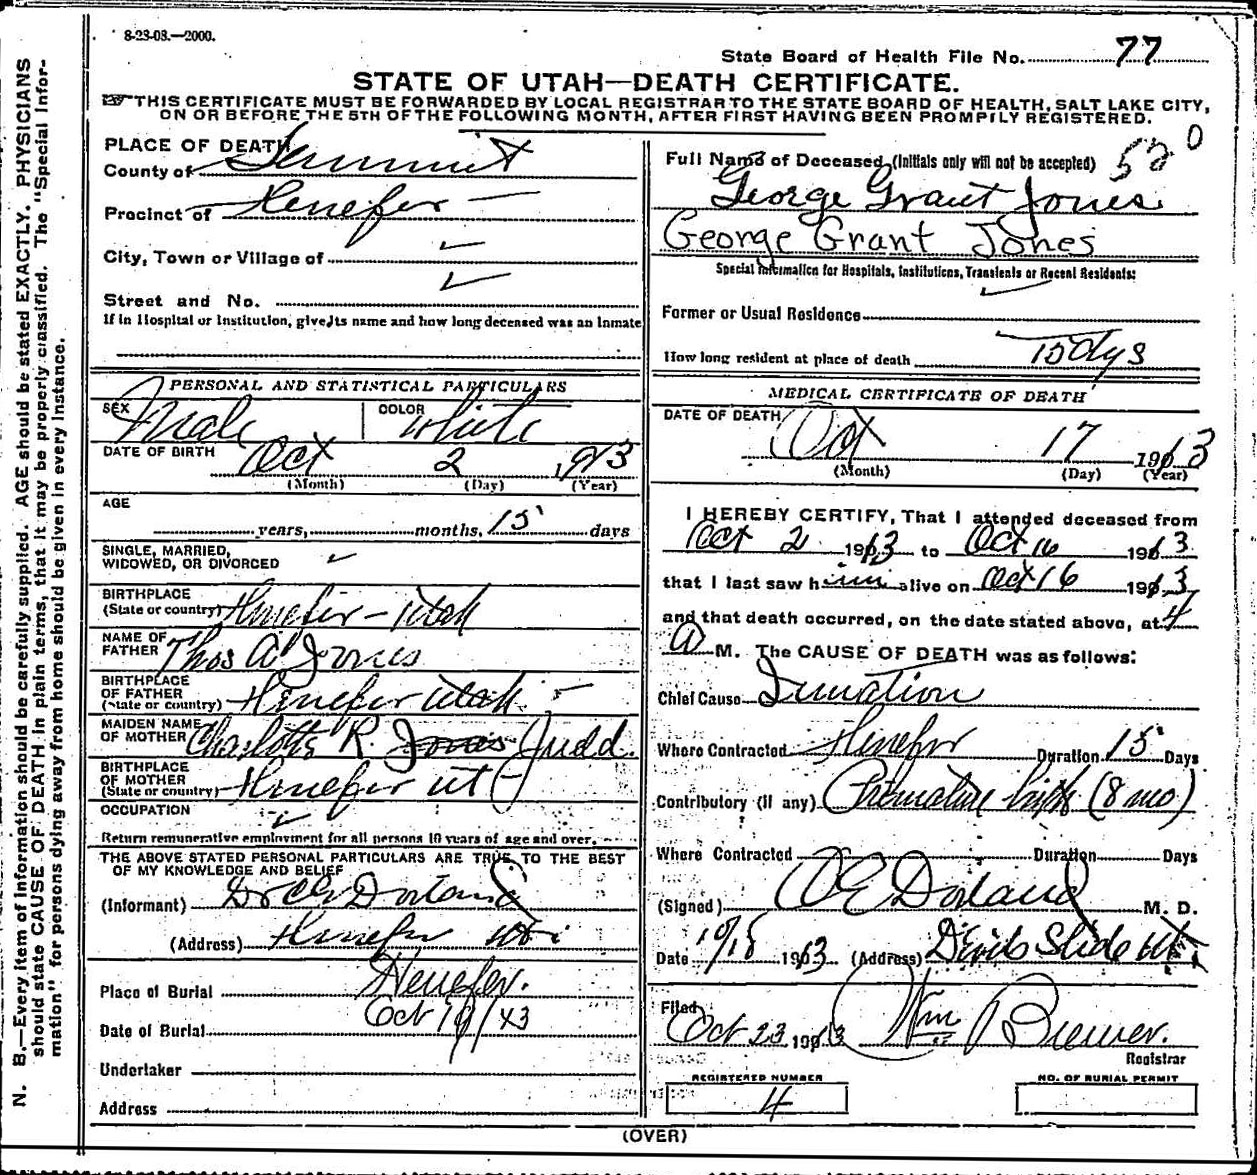 8-23-08.—2000.
State Board of Health File No. 77
STATE OF UTAH—DEATH CERTIFICATE.
THIS CERTIFICATE MUST BE FORWARDED BY LOCAL REGISTRAR TO THE STATE BOARD OF HEALTH, SALT LAKE CITY,
ON OR BEFORE THE 5TH OF THE FOLLOWING MONTH, AFTER FIRST HAVING BEEN PROMPTLY REGISTERED.
PLACE OF DEATH
County of Summit
Precinct of Henefer
City, Town or Village of
Street and No.
If in Hospital or Institution, give its name and how long deceased was an inmate
PERSONAL AND STATISTICAL PARTICULARS
SEX Male COLOR White
DATE OF BIRTH Oct 2 1913
(Month) (Day) (Year)
AGE
years, months, 15 days
SINGLE, MARRIED,
WIDOWED, OR DIVORCED
BIRTHPLACE
(State or country) Henefer - Utah
NAME OF
FATHER Thos A Jones
BIRTHPLACE
OF FATHER
(State or country) Henefer Utah
MAIDEN NAME
OF MOTHER Charlotte R. Jones Judd.
BIRTHPLACE
OF MOTHER
(State or country) Henefer Ut
OCCUPATION
Return remunerative employment for all persons 10 years of age and over.
THE ABOVE STATED PERSONAL PARTICULARS ARE TRUE TO THE BEST
OF MY KNOWLEDGE AND BELIEF
(Informant) Dr Dorland
(Address) Henefer Ut
Place of Burial Henefer.
Date of Burial Oct 19/13
Undertaker
Address
Full Name of Deceased (Initials only will not be accepted) 520
George Grant Jones
George Grant Jones
Special Information for Hospitals, Institutions, Transients or Recent Residents:
Former or Usual Residence
How long resident at place of death 15 dys
MEDICAL CERTIFICATE OF DEATH
DATE OF DEATH
Oct 17 1913
(Month) (Day) (Year)
I HEREBY CERTIFY, That I attended deceased from
Oct 2 1913 to Oct 16 1913
that I last saw him alive on Oct 16 1913
and that death occurred, on the date stated above, at 4
A M. The CAUSE OF DEATH was as follows:
Chief Cause Inanition
Where Contracted Henefer Duration 15 Days
Contributory (if any) Premature birth (8 mo)
Where Contracted Duration Days
(Signed) O E Dorland M. D.
Date 10/18 1913 (Address) Devils Slide Ut
Filed Oct 23 1913 Wm Brewer.
Registrar
REGISTERED NUMBER
4
NO. OF BURIAL PERMIT
(OVER)
N. B.—Every item of information should be carefully supplied. AGE should be stated EXACTLY. PHYSICIANS
should state CAUSE OF DEATH in plain terms, that it may be properly classified. The "Special Infor-
mation" for persons dying away from home should be given in every instance.